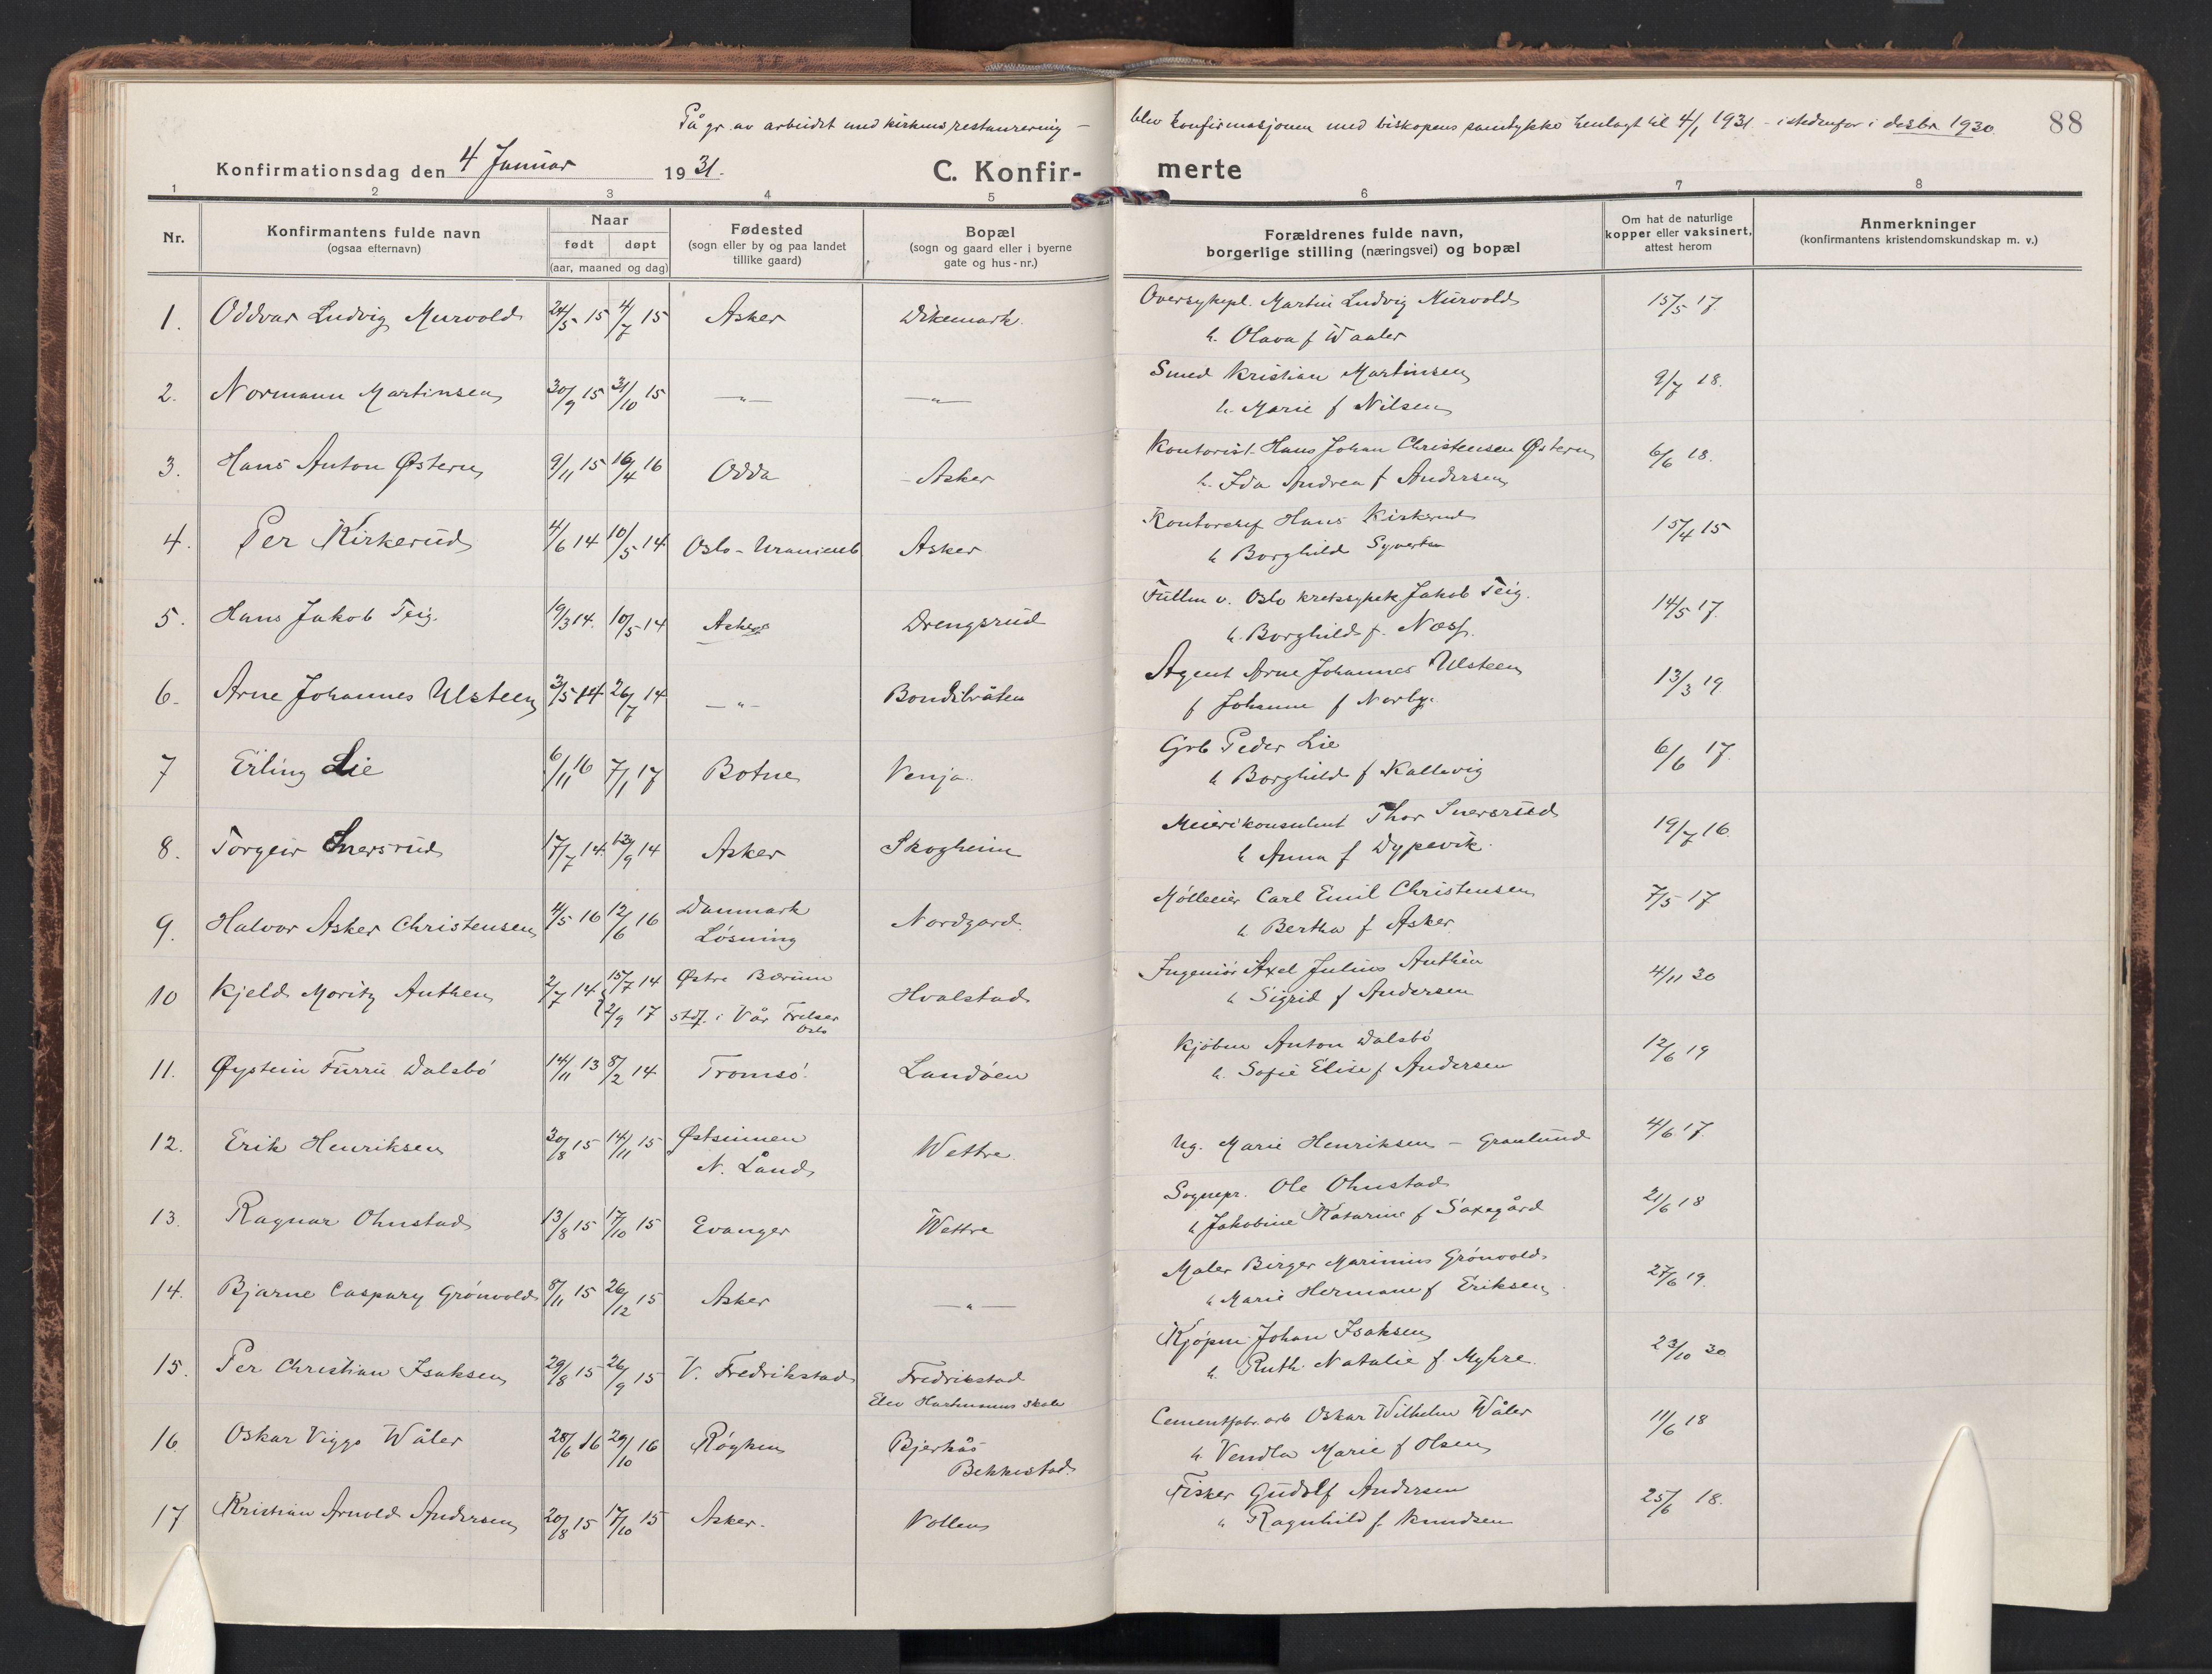 På gr. av arbeidet med kirkens restaurering - blev konfirmasjonen med biskopens samtykke henlagt til 4/1 1931. - istedenfor i desbr. 1930.
88
Konfirmationsdag den 4 Januar 1931.
C. Konfirmerte
1 2 3 4 5 6 7 8
Nr.
Konfirmantens fulde navn
(ogsaa efternavn)
Naar
født døpt
(aar, maaned og dag)
Fødested
(sogn eller by og paa landet
tillike gaard)
Bopæl
(sogn og gaard eller i byerne
gate og hus-nr.)
Forældrenes fulde navn,
borgerlige stilling (næringsvei) og bopæl
Om hat de naturlige
kopper eller vaksinert,
attest herom
Anmerkninger
(konfirmantens kristendomskundskap m. v.)
1. Oddvar Ludvig Murvold 24/5 15 4/7 15 Asker Dikemark. Oversykepl. Martin Ludvig Murvold 15/5 17.
h. Olava f Waaler
2. Normann Martinsen 30/9 15 31/10 15 —"— —"— Smed Kristian Martinsen 9/7 18.
h. Marie f Nilsen
3. Hans Anton Østern 9/11 15 16/4 16 Odda - Asker Kontorist Hans Johan Christensen Østern 6/6 18.
h. Ida Andrea f Andersen
4. Per Kirkerud 4/6 14 10/5 14 Oslo - Uranienb Asker Kontorchef Hans Kirkerud 15/4 15
h Borghild Syvertsen
5. Hans Jakob Teig. 19/3 14. 10/5 14 Asker Drengsrud Fullm v. Oslo kretssykek. Jakob Teig. 14/5 17.
h. Borghild f. Næss.
6. Arne Johannes Ulsteen 3/5 14 26/7 14 —"— Bondibråten Agent Arne Johannes Ulsteen 13/3 19
f Johanne f Norby.
7 Erling Lie 6/11 16 7/1 17 Botne Venja. Grb Peder Lie 6/6 17.
h Borghild f Kallevig
8. Torgeir Snersrud 17/7 14. 13/9 14 Asker Skogheim Meierikonsulent Thor Snersrud 19/7 16.
h Anna f Dypevik.
9. Halvor Asker Christensen 4/5 16 12/6 16 Danmark Løsning Nordgard. Mølleeier Carl Emil Christensen 7/5 17
h Bertha f Asker
10 Kjeld Moritz Anthen 2/7 14 15/7 14 Østre Bærum Hvalstad Ingeniør Axel Julius Anthén 4/11 30
2/9 17 stdf. i Vår Frelser Oslo h Sigrid f Andersen
11. Øystein Furru Dalsbó 14/11 13 8/2 14 Tromsö. Landöen Kjöbm Anton Dalsbó 12/6 19
h. Sofie Elise f Andersen
12. Erik Henriksen 30/8 15 14/11 15 Østsinnen N. Land Wettre. Ug. Marie Henriksen - Granlund 4/6 17.
13. Ragnar Ohnstad 13/8 15 17/10 15 Evanger Wettre Sognepr. Ole Ohnstad 21/6 18
h Jakobine Katarine f Saxegård
14. Bjarne Caspary Grönvold 8/11 15 26/12 15 Asker —"— Maler Birger Marinius Grönvold 27/6 19.
h Marie Hermane f Eriksen.
15. Per Christian Isaksen 29/8 15 26/9 15 V. Fredrikstad Fredrikstad Kjøpm. Johan Isaksen 23/10 30
Elev Hartmanns skole h. Ruth Natalie f. Myhre.
16. Oskar Viggo Wåler 28/6 16 29/10 16 Røyken Bjerkås Bekkestad. Cementfabr. arb Oskar Wilhelm Wåler 11/6 18
h. Vendla Marie f Olsen
17 Kristian Arnold Andersen 20/8 15 17/10 15 Asker. Vollen Fisker Gudolf Andersen 25/6 18.
" Ragnhild f. Knudsen